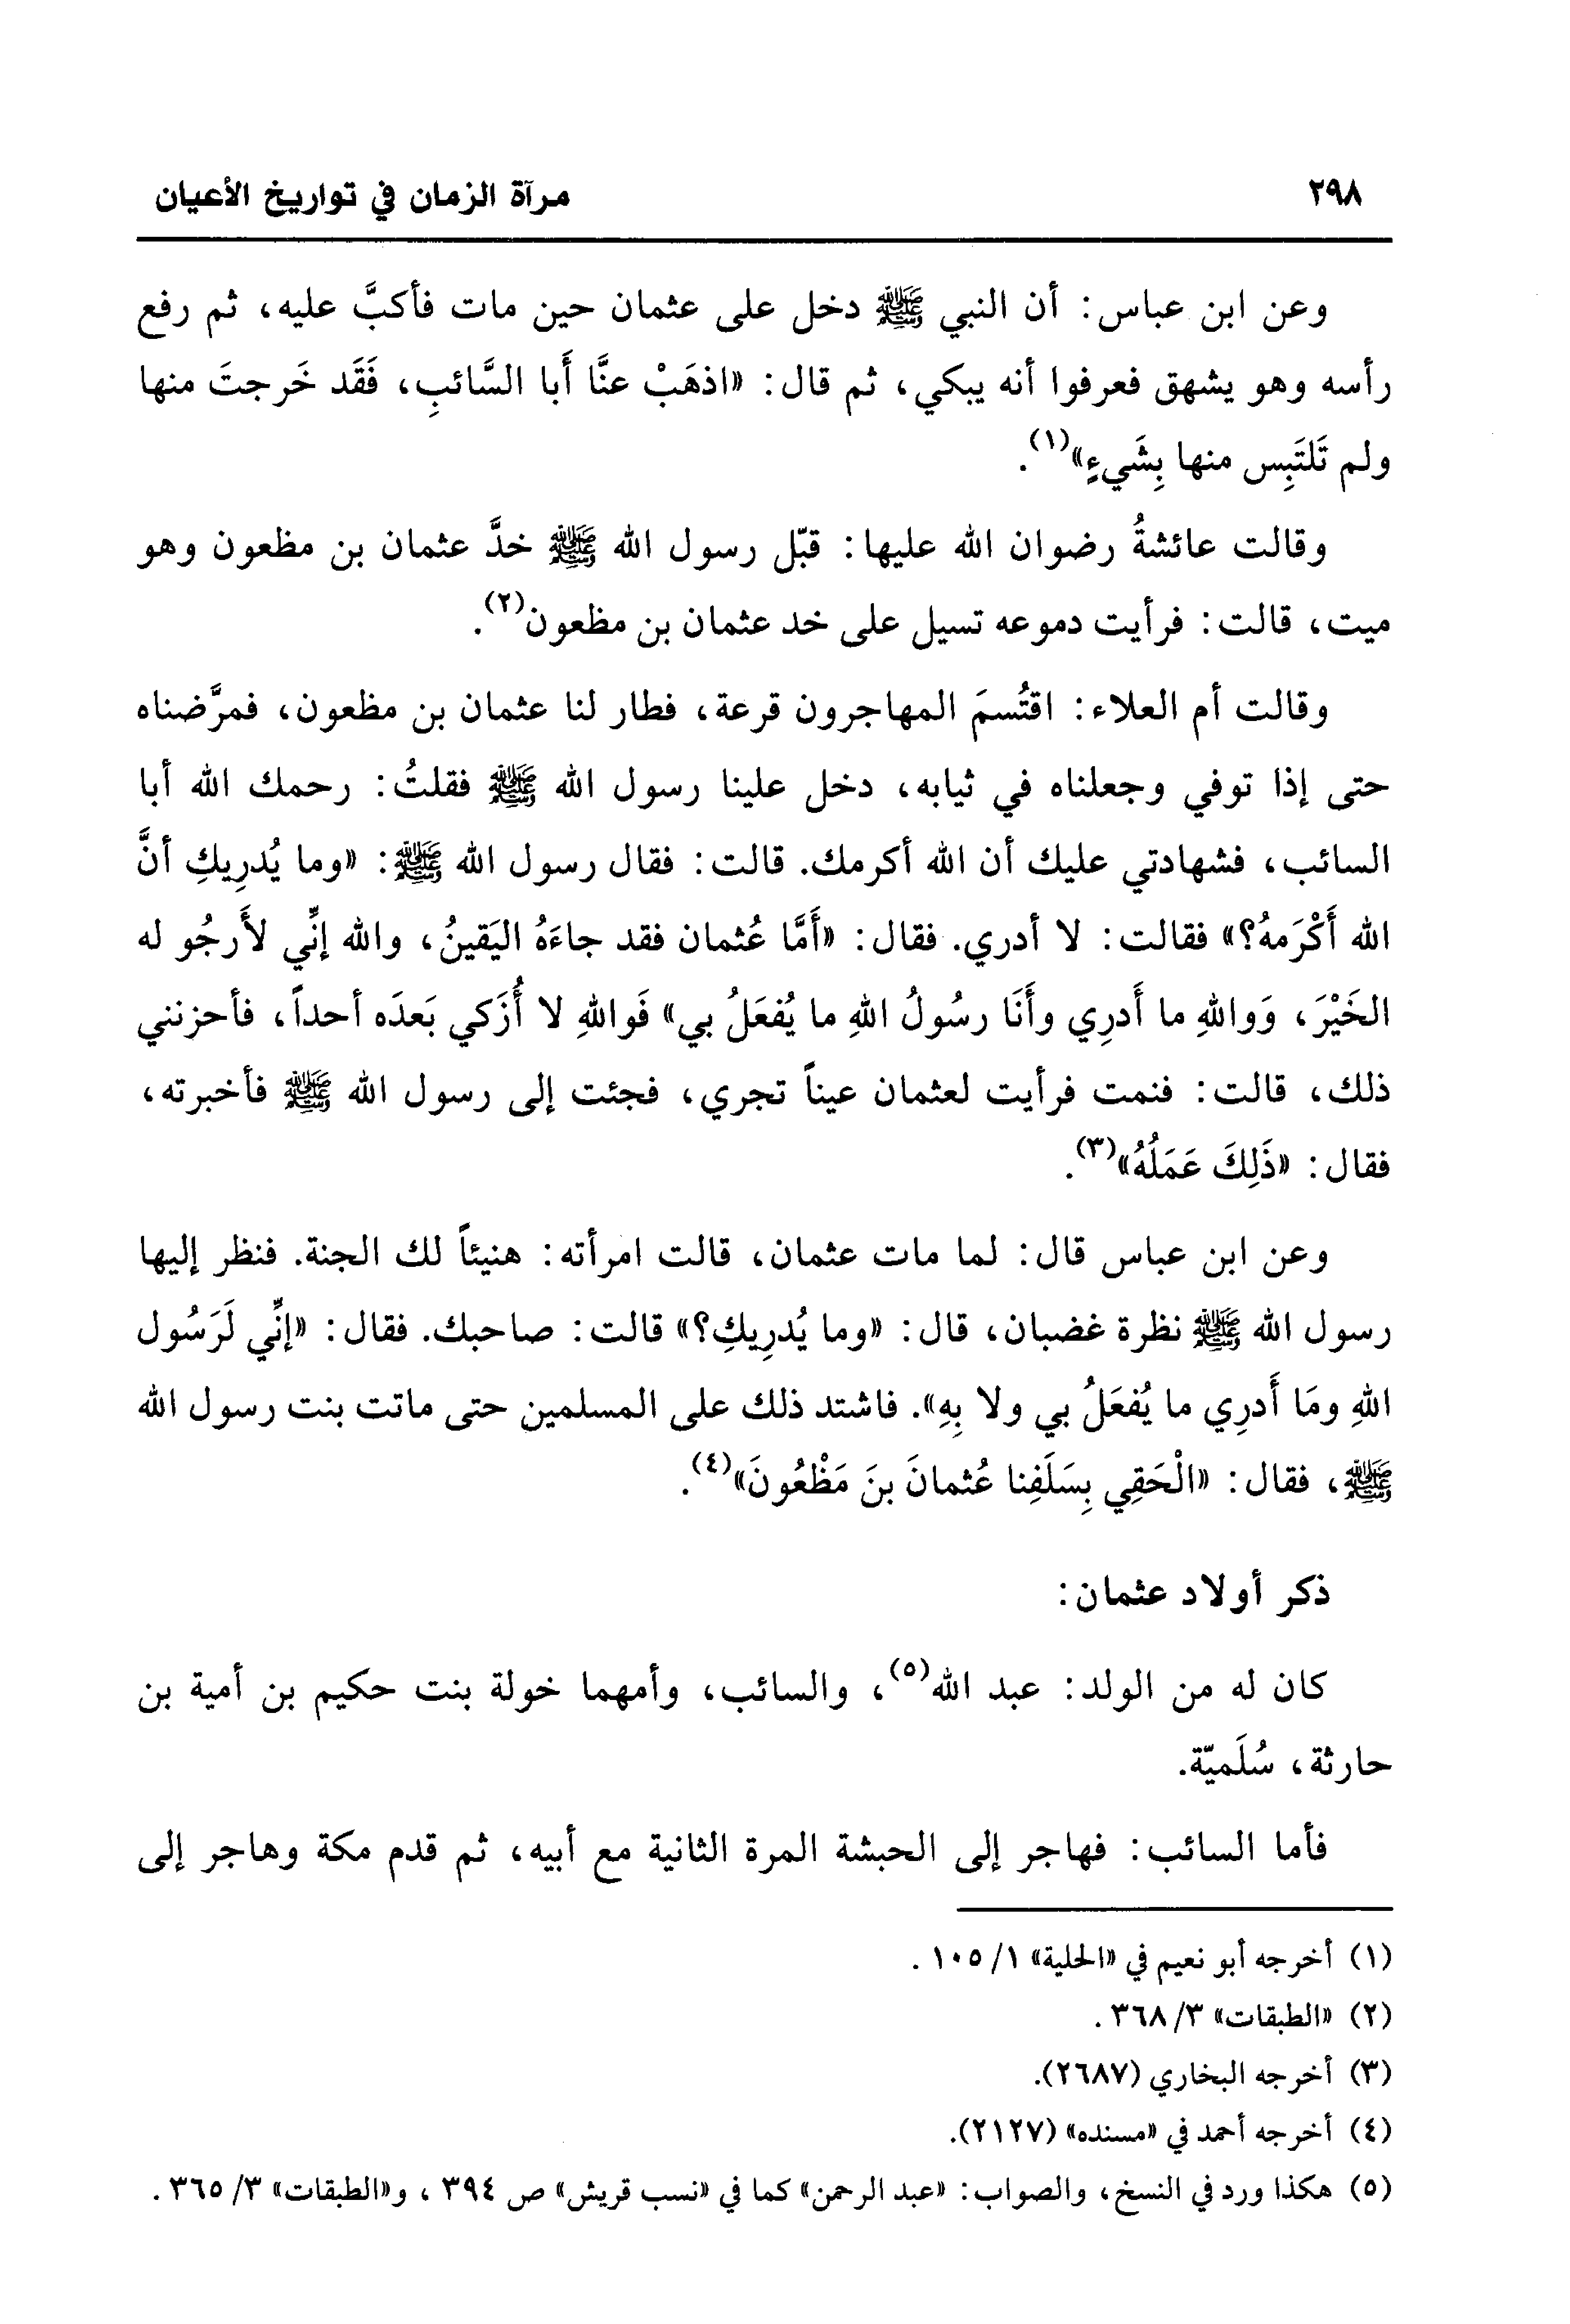 ٢٩٨ مرآة الزمان في تواريخ الأعيان
وعن ابن عباس: أن النبي ﷺ دخل على عثمان حين مات فأكبَّ عليه، ثم رفع
رأسه وهو يشهق فعرفوا أنه يبكي، ثم قال: «اذهَبْ عنَّا أَبا السَّائبِ، فَقَد خَرجتَ منها
ولم تَلتَبِس منها بِشَيءٍ»(١).
وقالت عائشةُ رضوان الله عليها: قبّل رسول الله ﷺ خدَّ عثمان بن مظعون وهو
ميت، قالت: فرأيت دموعه تسيل على خد عثمان بن مظعون(٢).
وقالت أم العلاء: اقتُسمَ المهاجرون قرعة، فطار لنا عثمان بن مظعون، فمرَّضناه
حتى إذا توفي وجعلناه في ثيابه، دخل علينا رسول الله ﷺ فقلتُ: رحمك الله أبا
السائب، فشهادتي عليك أن الله أكرمك. قالت: فقال رسول الله ﷺ: «وما يُدرِيكِ أنَّ
الله أَكْرَمهُ؟» فقالت: لا أدري. فقال: «أَمَّا عُثمان فقد جاءَهُ اليَقينُ، والله إنِّي لأَرجُو له
الخَيْرَ، وَواللهِ ما أَدرِي وأَنَا رسُولُ اللهِ ما يُفعَلُ بي» فَواللهِ لا أُزَكي بَعدَه أحداً، فأحزنني
ذلك، قالت: فنمت فرأيت لعثمان عيناً تجري، فجئت إلى رسول الله ﷺ فأخبرته،
فقال: «ذَلِكَ عَمَلُهُ»(٣).
وعن ابن عباس قال: لما مات عثمان، قالت امرأته: هنيئاً لك الجنة. فنظر إليها
رسول الله ﷺ نظرة غضبان، قال: «وما يُدرِيكِ؟» قالت: صاحبك. فقال: «إنِّي لَرَسُول
اللهِ ومَا أَدرِي ما يُفعَلُ بي ولا بِهِ». فاشتد ذلك على المسلمين حتى ماتت بنت رسول الله
ﷺ، فقال: «الْحَقِي بِسَلَفِنا عُثمانَ بنَ مَظْعُونَ»(٤).
ذكر أولاد عثمان:
كان له من الولد: عبد الله(٥)، والسائب، وأمهما خولة بنت حكيم بن أمية بن
حارثة، سُلَميّة.
فأما السائب: فهاجر إلى الحبشة المرة الثانية مع أبيه، ثم قدم مكة وهاجر إلى
(١) أخرجه أبو نعيم في «الحلية» ١/ ١٠٥ .
(٢) «الطبقات» ٣/ ٣٦٨ .
(٣) أخرجه البخاري (٢٦٨٧).
(٤) أخرجه أحمد في «مسنده» (٢١٢٧).
(٥) هكذا ورد في النسخ، والصواب: «عبد الرحمن» كما في «نسب قريش» ص ٣٩٤ ، و«الطبقات» ٣/ ٣٦٥ .